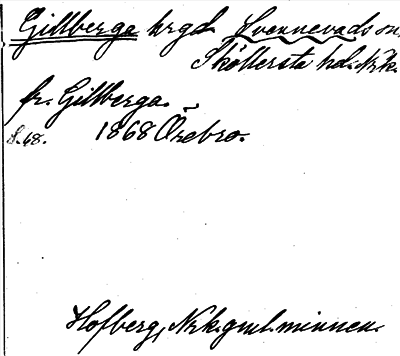 Gillberge hrgd Svennevads sn.
Sköllersta hd. Nrk.
fr. Gillberga.
S. 48. 1868 Örebro.
Hofberg, Nrk. gml. minnen.